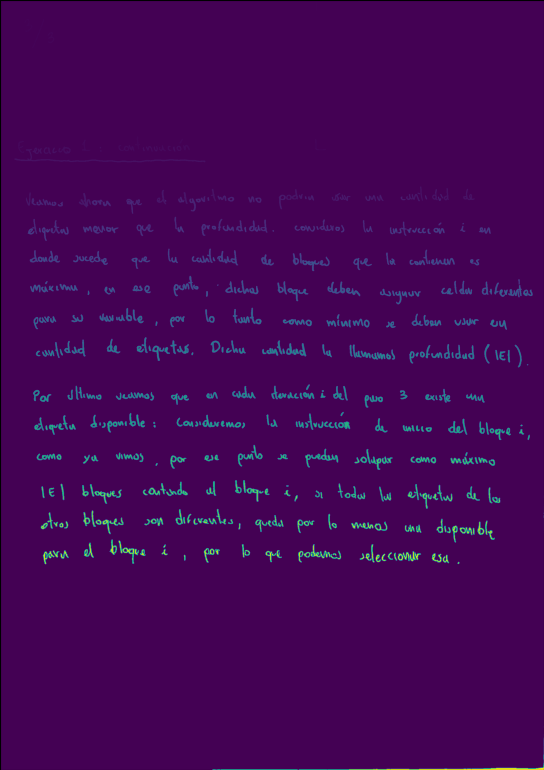 Ejercicio 2 : continuación
Veamos ahora que el algoritmo no podria usar una cantidad de
etiquetas menor que la profundidad. considers la instrucción i en
donde sucede que la cantidad de bloques que la contienen es
máxima, en ese punto, dichos bloque deben asignar celdas diferentes
para su variable, por lo tanto como mínimo se deben usar esa
cantidad de etiquetas. Dicha cantidad la llamamos profundidad (|E|).
Por último veamos que en cada iteración i del paso 3 existe una
etiqueta disponible: Consideremos la instrucción de inicio del bloque i,
como ya vimos, por ese punto se pueden solapar como máximo
|E| bloques contando al bloque i, si todas las etiquetas de los
otros bloques son diferentes, queda por lo menos una disponible
para el bloque i, por lo que podemos seleccionar esa.